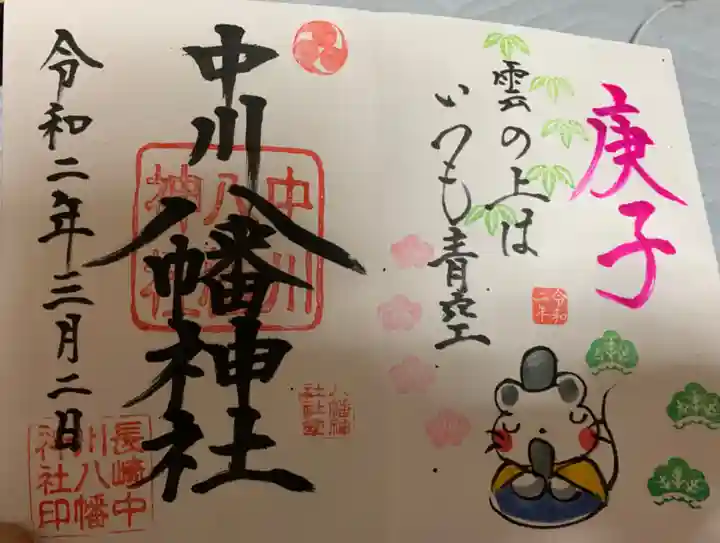 庚子
雲の上は
いつも青空
令和
二年
中川八幡神社
中川
八幡
神社
八幡神
社社室
令和二年三月二日
長崎中
川八幡
神社印